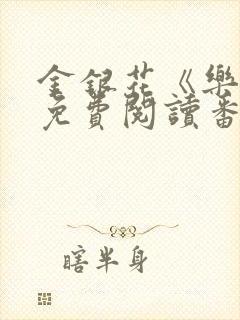 金銀花《樂
免費閱讀番
瞎半身